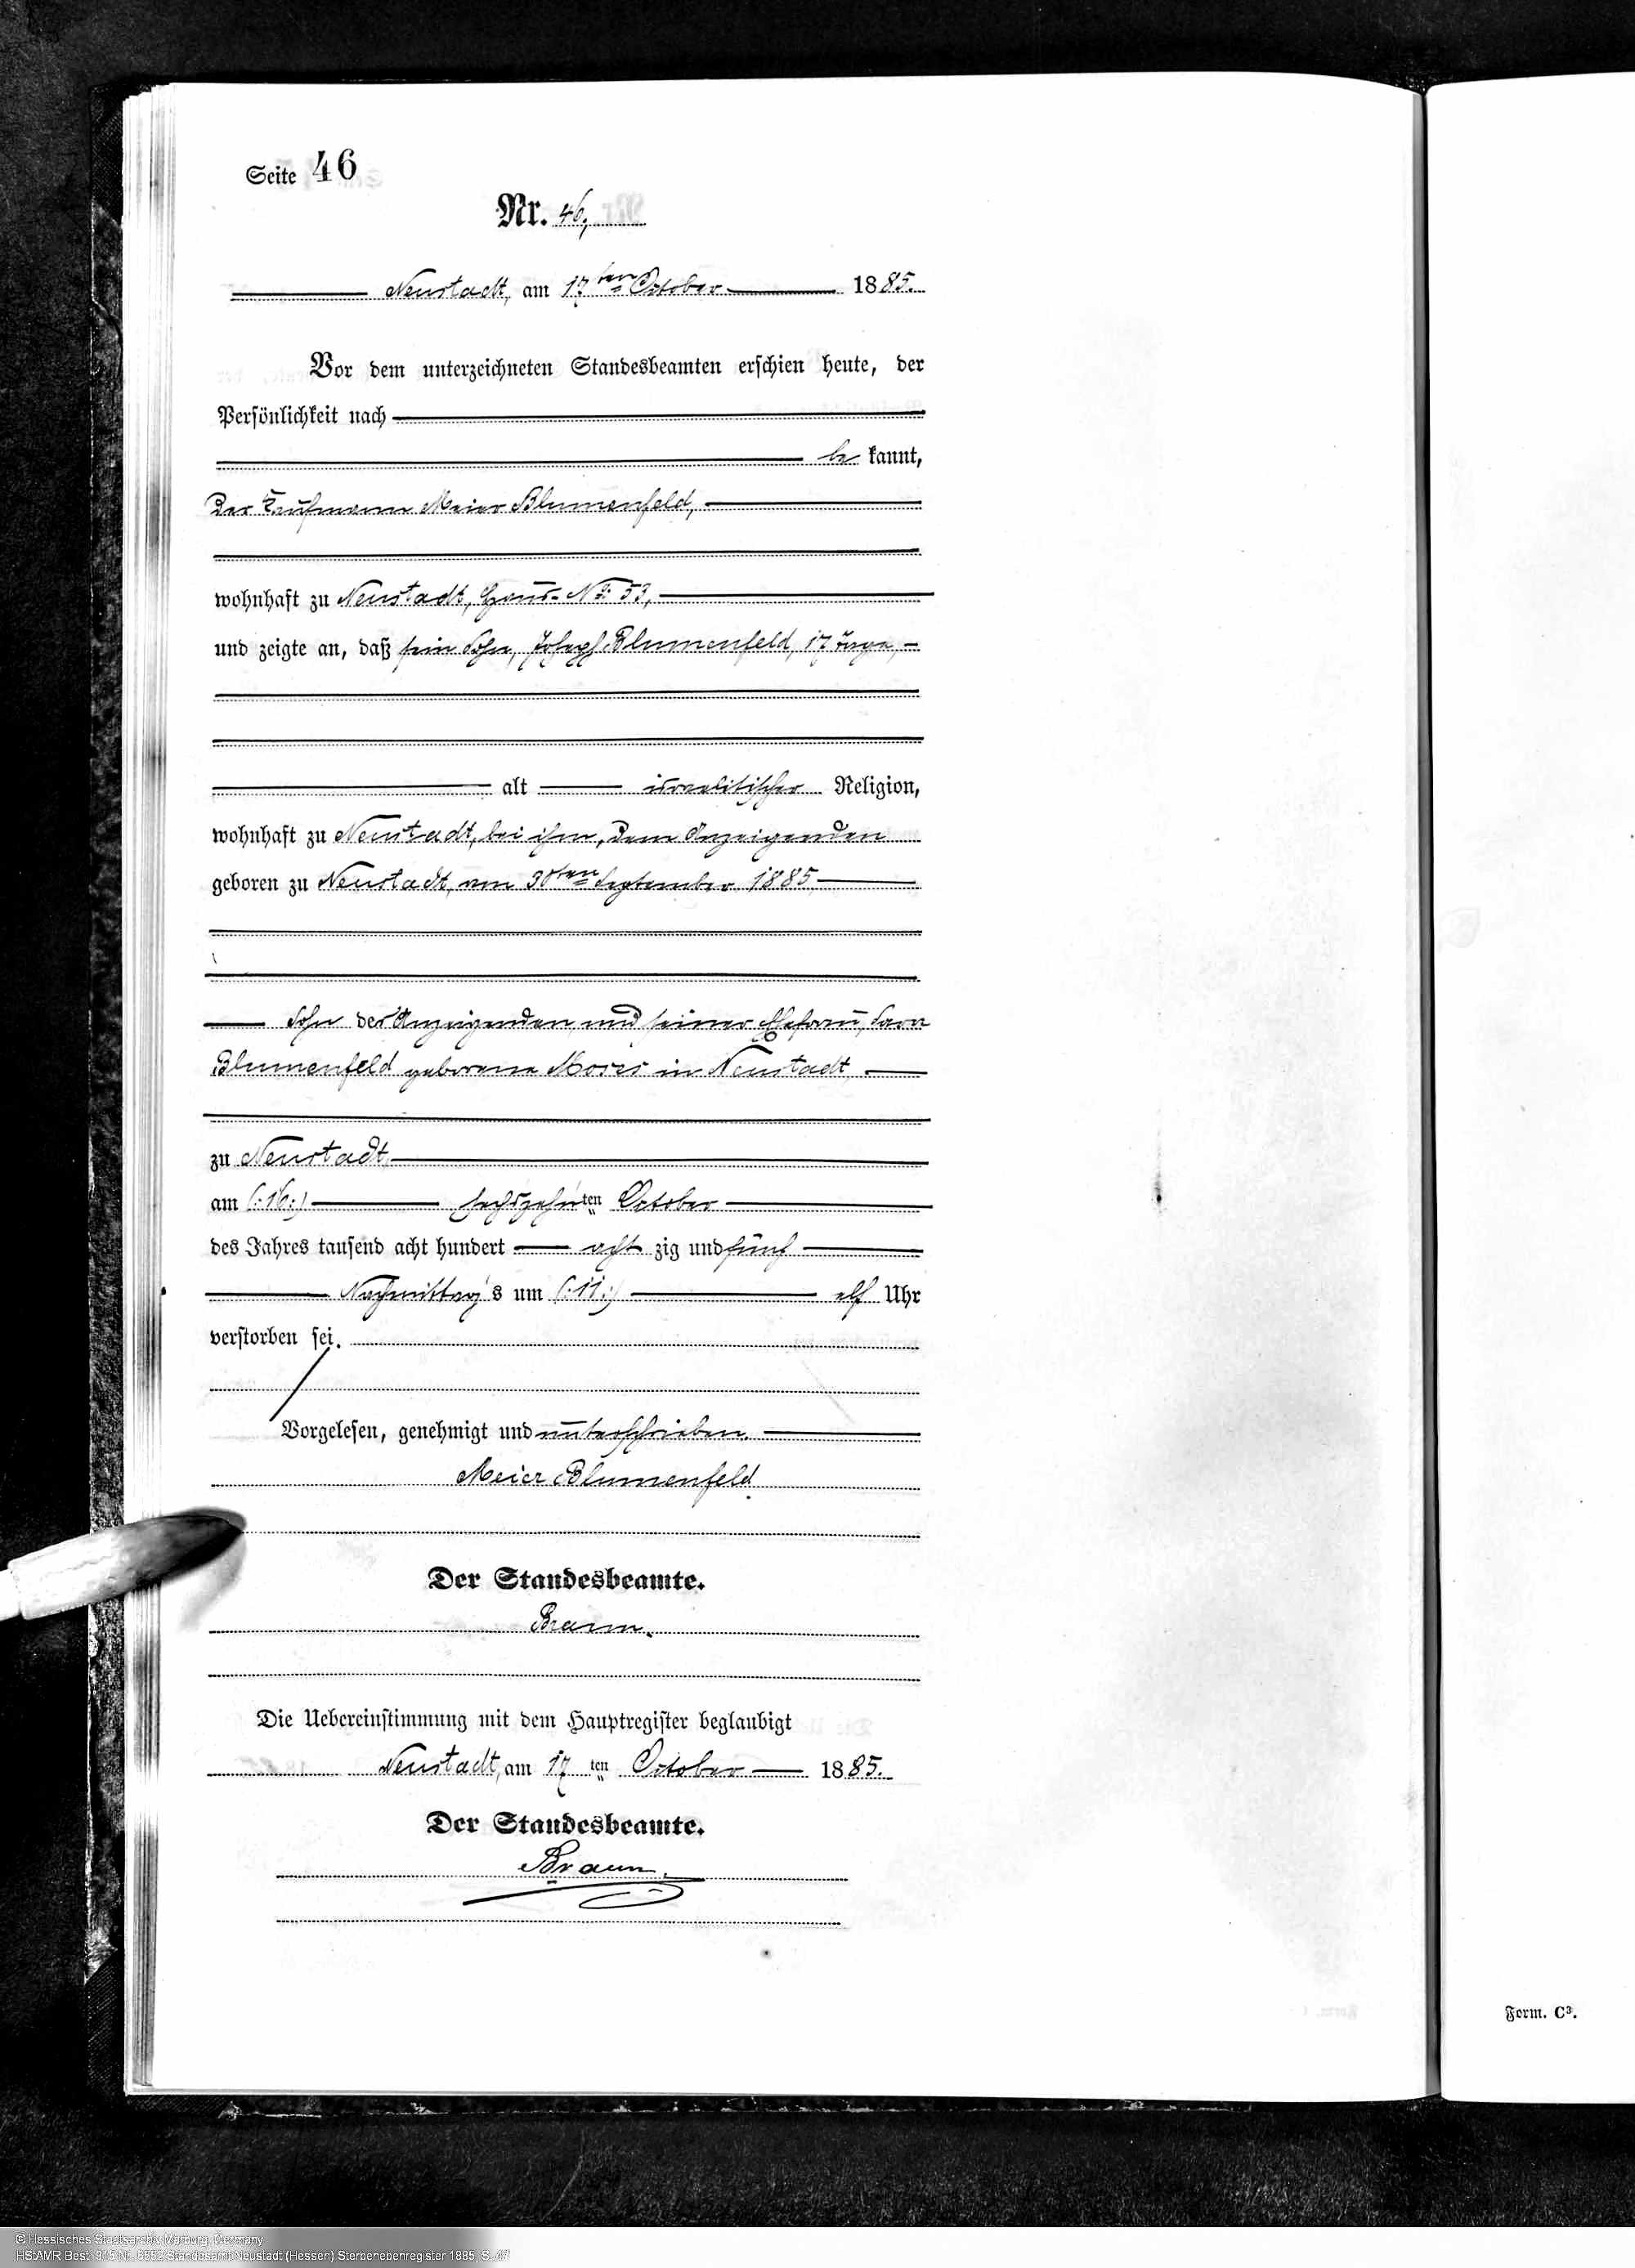 Seite 46
Nr. 46,
Neustadt, am 17ten October 1885.
Vor dem unterzeichneten Standesbeamten erschien heute, der
Persönlichkeit nach
be kannt,
der Kaufmann Meier Blumenfeld,
wohnhaft zu Neustadt, Haus-No 53,
und zeigte an, daß sein Sohn, Joseph Blumenfeld, 17 Tage,
alt israelitischer Religion,
wohnhaft zu Neustadt, bei ihm, dem Anzeigenden
geboren zu Neustadt, am 30ten September 1885
Sohn des Anzeigenden und seiner Ehefrau, Sara
Blumenfeld geborene Moses in Neustadt,
zu Neustadt
am (:16:) sechszehnten October
des Jahres tausend acht hundert acht zig und fünf
Nachmittags um (:11:) elf Uhr
verstorben sei.
Vorgelesen, genehmigt und unterschrieben.
Meier Blumenfeld.
Der Standesbeamte.
Braun.
Die Uebereinstimmung mit dem Hauptregister beglaubigt
Neustadt, am 17ten October 1885.
Der Standesbeamte.
Braun.
Form. C³.
© Hessisches Staatsarchiv Marburg, Germany
HStAMR Best. 915 Nr. 6552 Standesamt Neustadt (Hessen) Sterbenebenregister 1885, S. 47